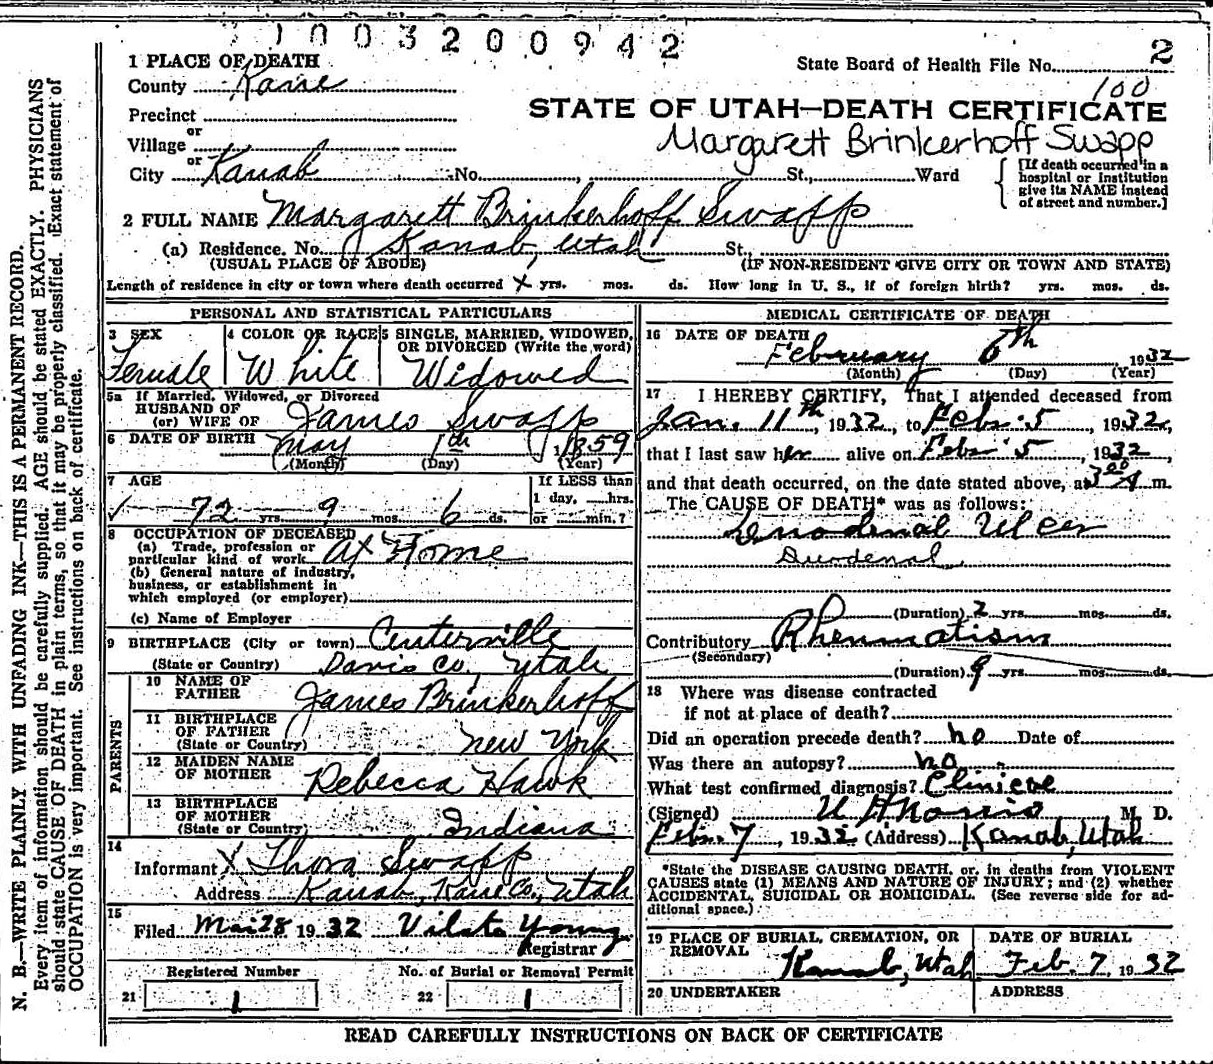 1003200942
2
1 PLACE OF DEATH
State Board of Health File No.
100
County Kane
STATE OF UTAH—DEATH CERTIFICATE
Precinct
Margarett Brinkerhoff Swapp
or
Village
or
City Kanab No. St., Ward
[If death occurred in a
hospital or institution
give its NAME instead
of street and number.]
2 FULL NAME Margarett Brinkerhoff Swapp
(a) Residence. No. Kanab, Utah St.,
(USUAL PLACE OF ABODE) (IF NON-RESIDENT GIVE CITY OR TOWN AND STATE)
Length of residence in city or town where death occurred X yrs. mos. ds. How long in U. S., if of foreign birth? yrs. mos. ds.
PERSONAL AND STATISTICAL PARTICULARS
3 SEX 4 COLOR OR RACE 5 SINGLE, MARRIED, WIDOWED,
OR DIVORCED (Write the word)
Female White Widowed
5a If Married, Widowed, or Divorced
HUSBAND OF
(or) WIFE OF James Swapp
6 DATE OF BIRTH May 1th 1859
(Month) (Day) (Year)
7 AGE If LESS than
1 day, hrs.
72 yrs. 9 mos. 6 ds. or min.?
8 OCCUPATION OF DECEASED
(a) Trade, profession or
particular kind of work At Home
(b) General nature of industry,
business, or establishment in
which employed (or employer)
(c) Name of Employer
9 BIRTHPLACE (City or town) Centerville
(State or Country) Davis Co, Utah
PARENTS
10 NAME OF
FATHER James Brinkerhoff
11 BIRTHPLACE
OF FATHER
(State or Country) New York
12 MAIDEN NAME
OF MOTHER Rebecca Hawk
13 BIRTHPLACE
OF MOTHER
(State or Country) Indiana
14
Informant X Thora Swapp
Address Kanab, Kane Co, Utah
15
Filed Mar 28 1932 Vilate Young
Registrar
Registered Number No. of Burial or Removal Permit
21 1 22 1
MEDICAL CERTIFICATE OF DEATH
16 DATE OF DEATH
February 6th 1932
(Month) (Day) (Year)
17 I HEREBY CERTIFY, That I attended deceased from
Jan. 11th, 1932, to Feb. 5 1932,
that I last saw her alive on Feb. 5, 1932,
and that death occurred, on the date stated above, at 3 00 A m.
The CAUSE OF DEATH* was as follows:
Duodenal Ulcer
Duodenal
(Duration) 2 yrs. mos. ds.
Contributory Rheumatism
(Secondary)
(Duration) 9 yrs. mos. ds.
18 Where was disease contracted
if not at place of death?
Did an operation precede death? no Date of
Was there an autopsy? no
What test confirmed diagnosis? Clinical
(Signed) Norris M. D.
Feb. 7, 1932 (Address) Kanab, Utah
*State the DISEASE CAUSING DEATH, or, in deaths from VIOLENT
CAUSES state (1) MEANS AND NATURE OF INJURY; and (2) whether
ACCIDENTAL, SUICIDAL OR HOMICIDAL. (See reverse side for ad-
ditional space.)
19 PLACE OF BURIAL, CREMATION, OR
REMOVAL
Kanab, Utah
DATE OF BURIAL
Feb. 7, 1932
20 UNDERTAKER ADDRESS
READ CAREFULLY INSTRUCTIONS ON BACK OF CERTIFICATE
N. B.—WRITE PLAINLY WITH UNFADING INK—THIS IS A PERMANENT RECORD.
Every item of information should be carefully supplied. AGE should be stated EXACTLY. PHYSICIANS
should state CAUSE OF DEATH in plain terms, so that it may be properly classified. Exact statement of
OCCUPATION is very important. See instructions on back of certificate.